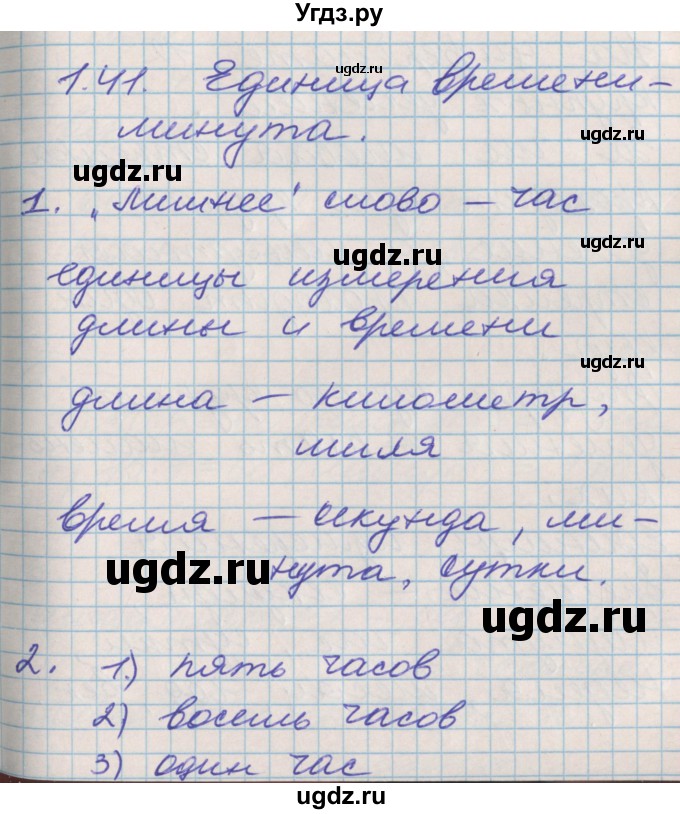 Угдз.ру
ugdz.ru
1.41. Единица времени-
минута.
ugdz.ru
ugdz.ru
1. „Лишнее‘ слово – час
ugdz.ru
ugdz.ru
единицы измерения
длины и времени
ugdz.ru
длина – километр,
миля
ugdz.ru
время – секунда, ми-
нута, сутки.
ugdz.ru
ugdz.ru
2. 1) пять часов
2) восемь часов
3) один час
ugdz.ru